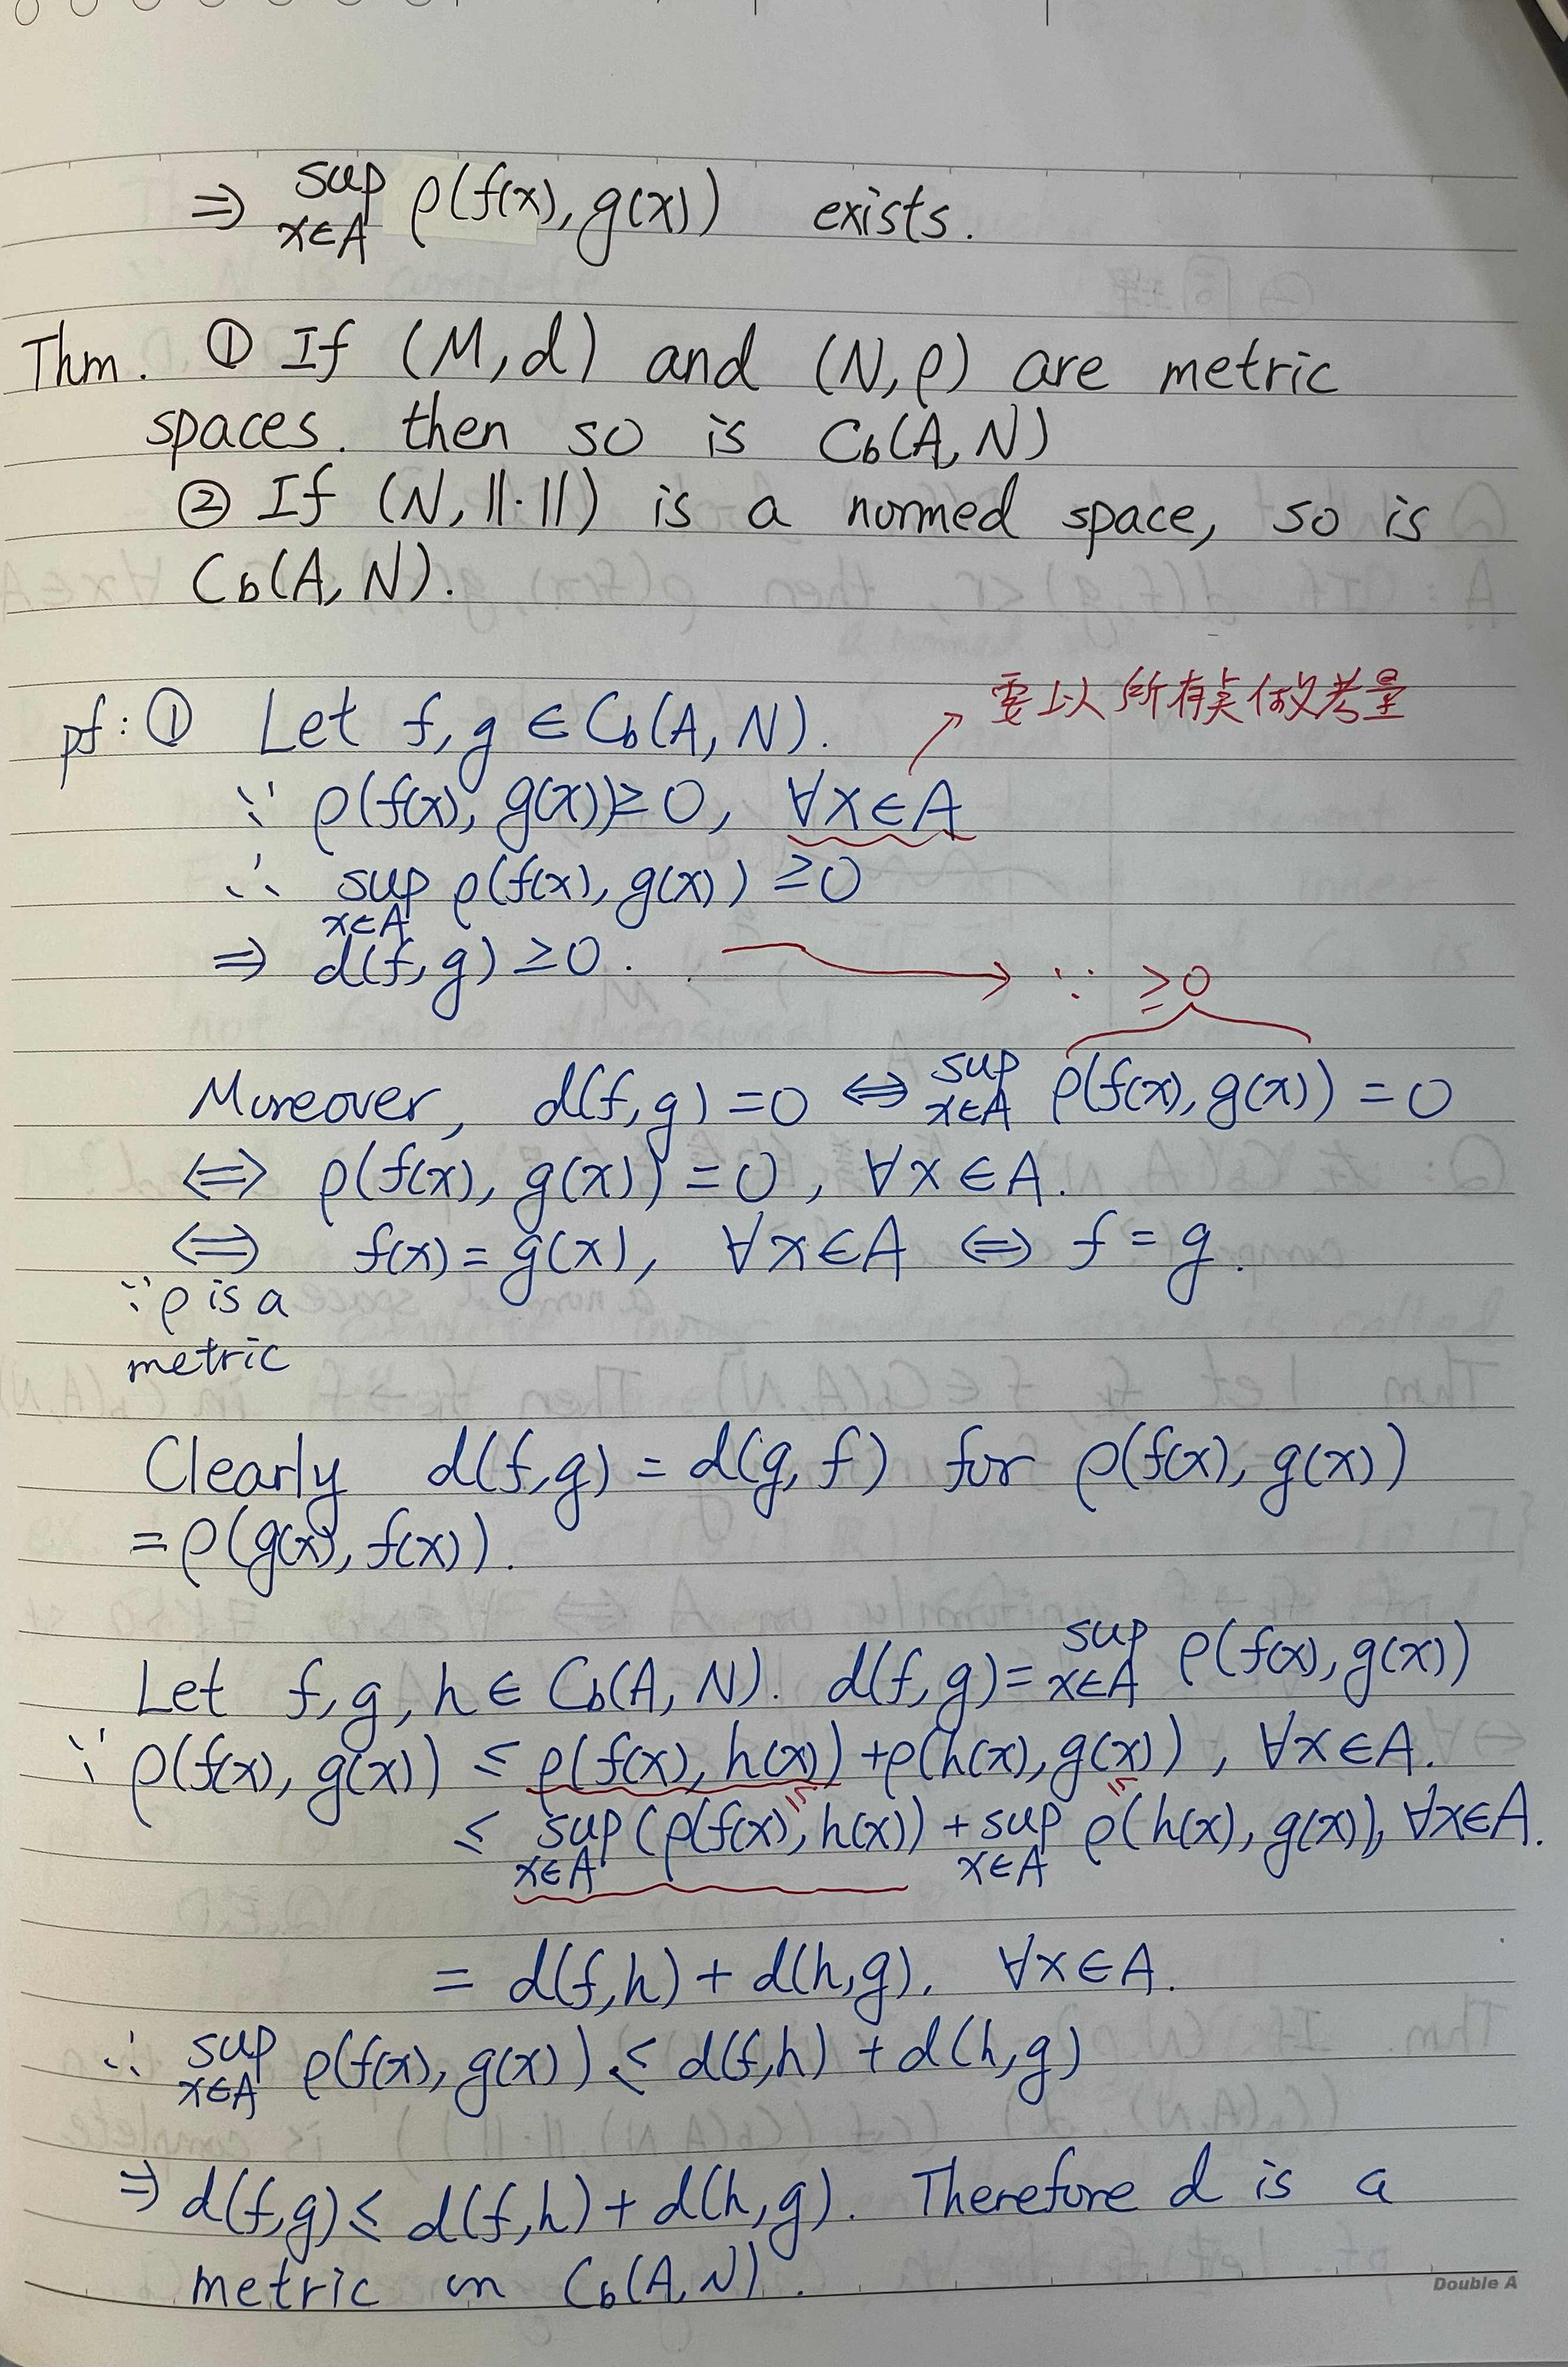 ⇒ sup ρ(f(x), g(x)) exists.
x∈A
Thm. ① If (M, d) and (N, ρ) are metric
spaces. then so is Cb(A, N)
② If (N, ||·||) is a normed space, so is
Cb(A, N).
要以所有點做考量
pf: ① Let f, g ∈ Cb(A, N).
∵ ρ(f(x), g(x)) ≥ 0, ∀x∈A
∴ sup ρ(f(x), g(x)) ≥ 0
x∈A
⇒ d(f, g) ≥ 0.
∵ ≥0
Moreover, d(f, g) = 0 ⇔ sup ρ(f(x), g(x)) = 0
x∈A
⇔ ρ(f(x), g(x)) = 0, ∀x∈A.
⇔ f(x) = g(x), ∀x∈A ⇔ f = g.
∵ ρ is a
metric
Clearly d(f, g) = d(g, f) for ρ(f(x), g(x))
= ρ(g(x), f(x)).
Let f, g, h ∈ Cb(A, N). d(f, g) = sup ρ(f(x), g(x))
x∈A
∵ ρ(f(x), g(x)) ≤ ρ(f(x), h(x)) + ρ(h(x), g(x)), ∀x∈A.
≤ sup (ρ(f(x), h(x)) + sup ρ(h(x), g(x)), ∀x∈A.
x∈A x∈A
= d(f, h) + d(h, g), ∀x∈A.
∴ sup ρ(f(x), g(x)) ≤ d(f, h) + d(h, g)
x∈A
⇒ d(f, g) ≤ d(f, h) + d(h, g). Therefore d is a
metric on Cb(A, N).
Double A